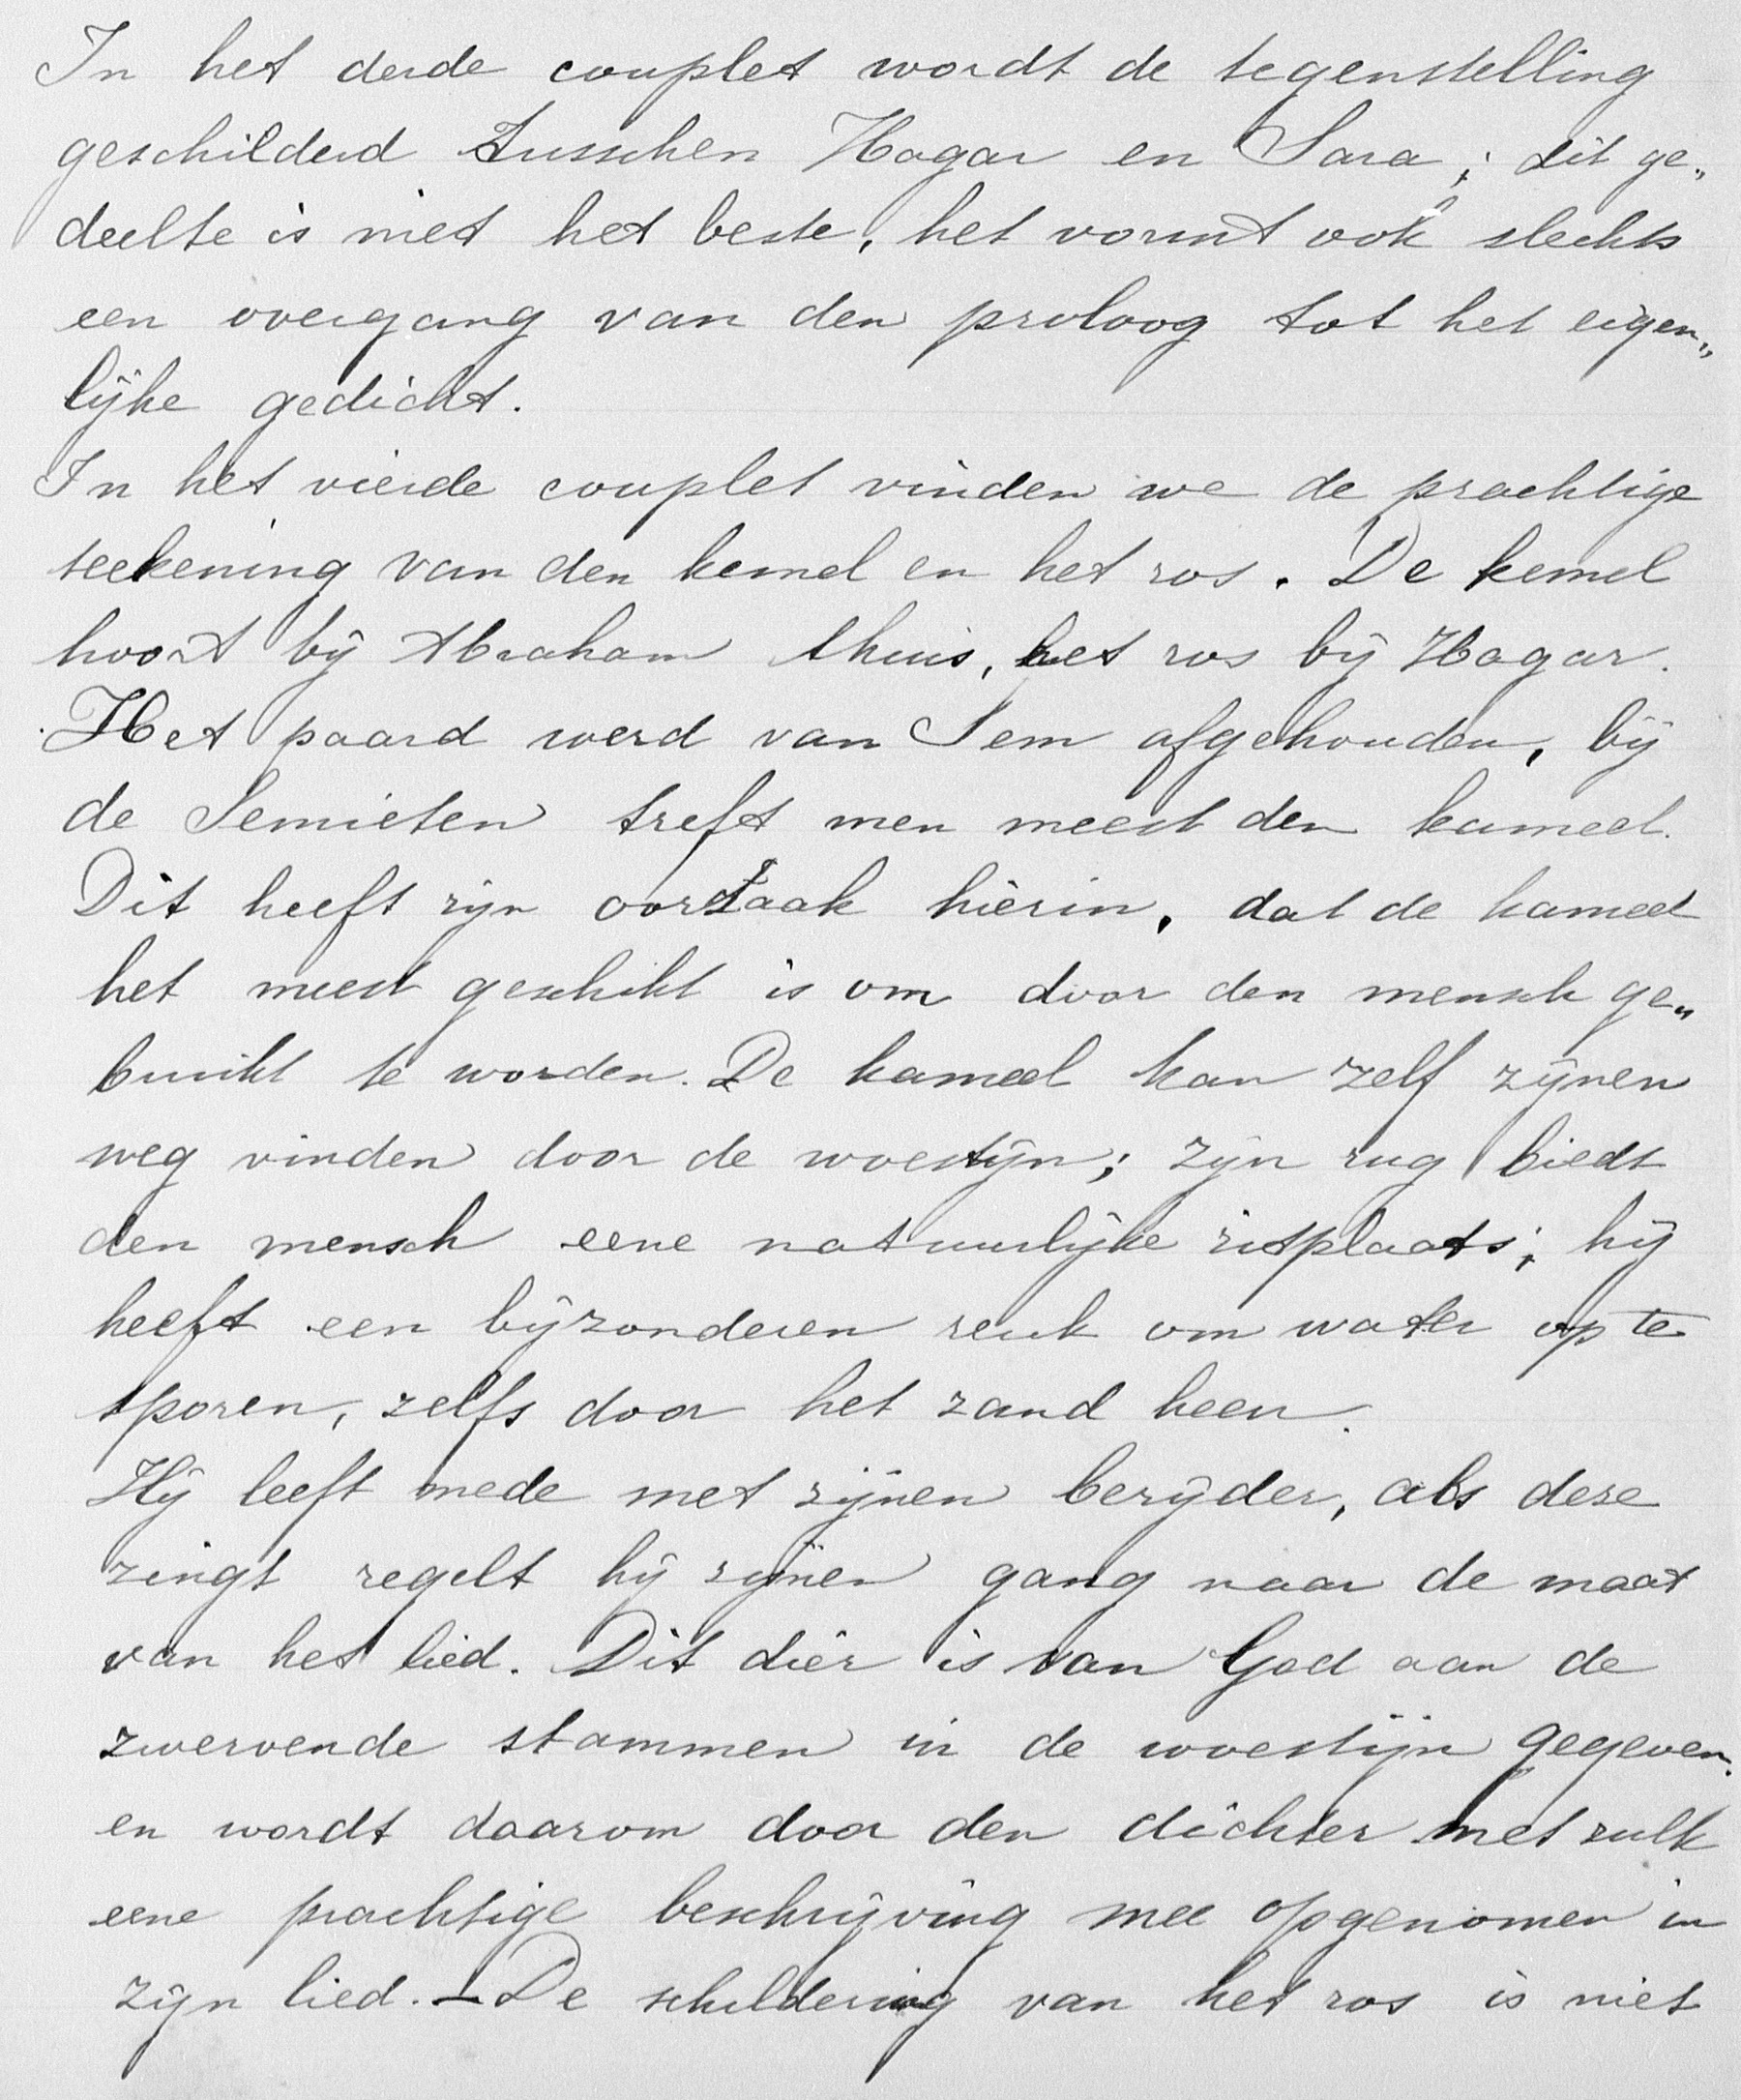 In het derde couplet wordt de tegenstelling
geschilderd tusschen Hagar en Sara; dit ge„
deelte is niet het beste, het vormt ook slechts
een overgang van den proloog tot het eigen„
lijke gedicht.
In het vierde couplet vinden we de prachtige
teekening van den kemel en het ros. De kemel
hoort bij Abraham thuis, het ros bij Hagar.
Het paard werd van Sem afgehouden, bij
de Semieten treft men meest den kameel.
Dit heeft zijn oorzaak hierin, dat de kameel
het meest geschikt is om door den mensch ge„
bruikt te worden. De kameel kan zelf zijnen
weg vinden door de woestijn; zijn rug biedt
den mensch eene natuurlijke zitplaats; hij
heeft een bijzonderen reuk om water op te
sporen, zelfs door het zand heen.
Hij leeft mede met zijnen berijder, als deze
zingt regelt hij zijnen gang naar de maat
van het lied. Dit dier is van God aan de
zwervende stammen in de woestijn gegeven.
en wordt daarom door den dichter met zulk
eene prachtige beschrijving mee opgenomen in
zijn lied. – De schildering van het ros is niet